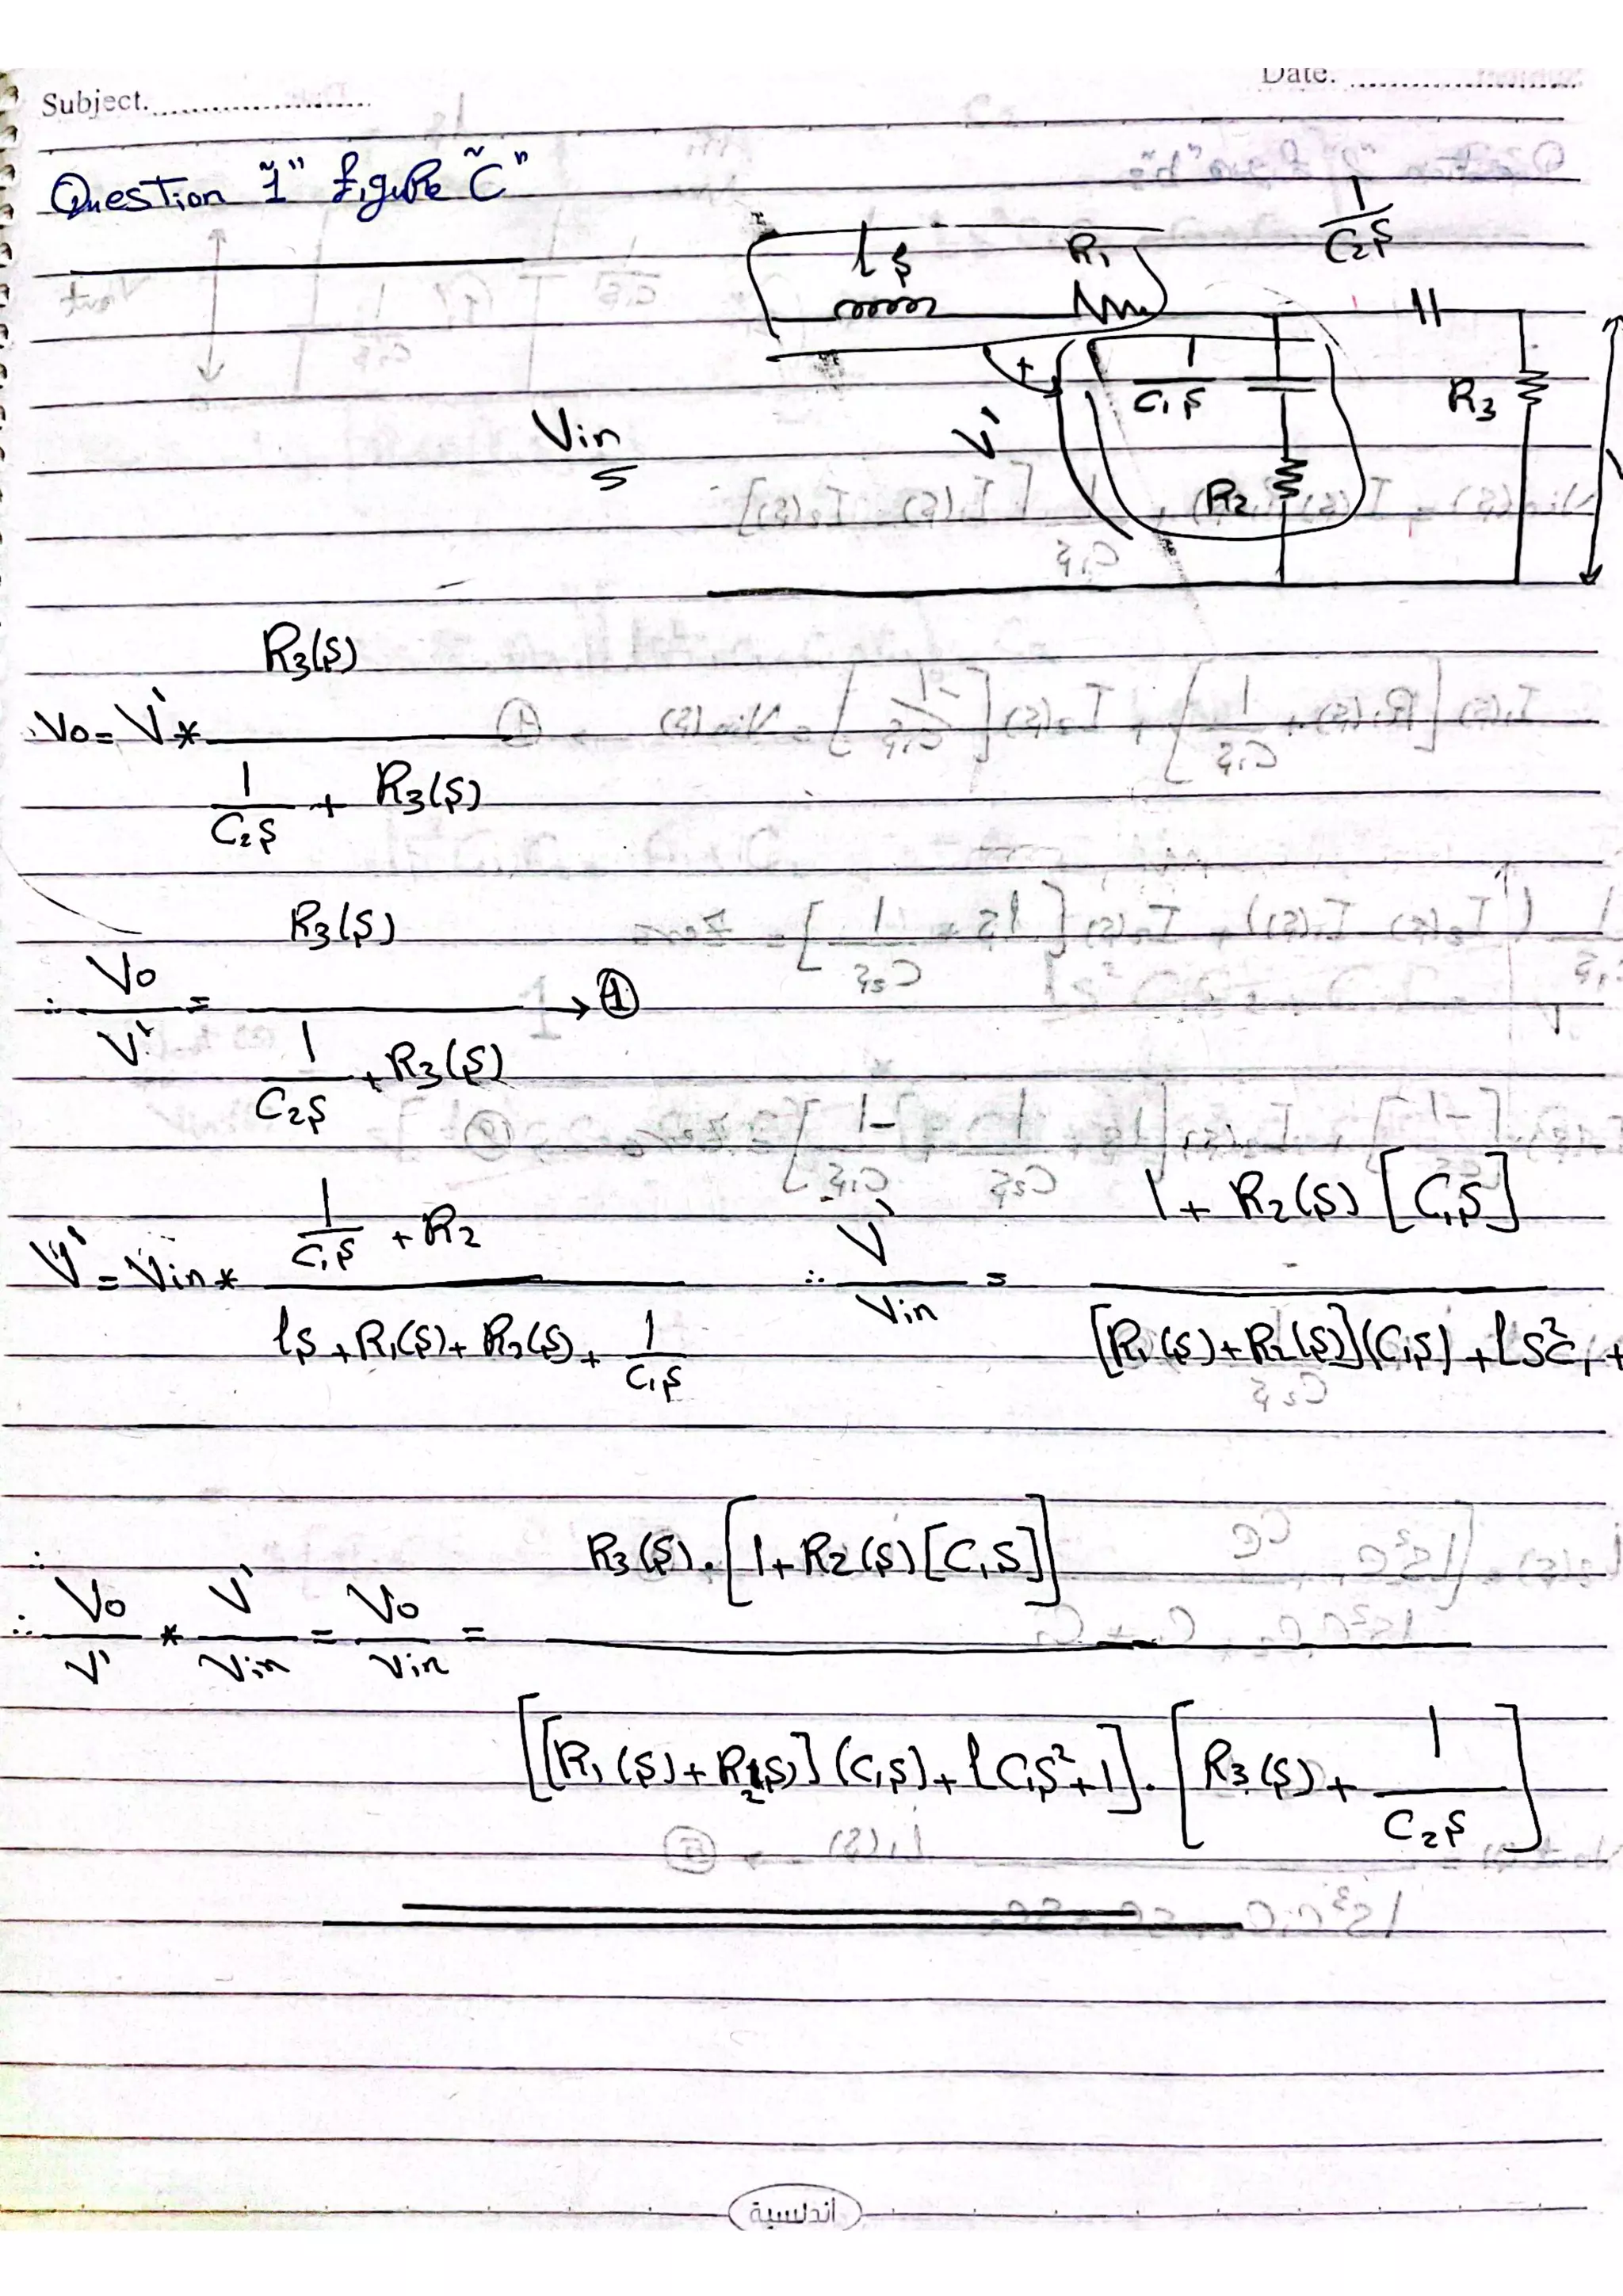 Date: ........................
Subject. ........................
Question "1" figure "C"
1/C₂S
LS R₁
+ 1/C₁S R₃
Vin V' 
S R₂
Vo = V' * R₃(S) / (1/C₂S + R₃(S))
∴ Vo/V' = R₃(S) / (1/C₂S + R₃(S)) → ①
V' = Vin * (1/C₁S + R₂) / (LS + R₁(S) + R₂(S) + 1/C₁S) ∴ V'/Vin = 1 + R₂(S) [C₁S] / [R₁(S) + R₂(S)](C₁S) + LS²C₁ +
∴ Vo/V' * V'/Vin = Vo/Vin = R₃(S) . [1 + R₂(S) [C₁S]] / [[R₁(S) + R₂(S)] (C₁S) + LC₁S² + 1] . [R₃(S) + 1/C₂S]
أندلسية